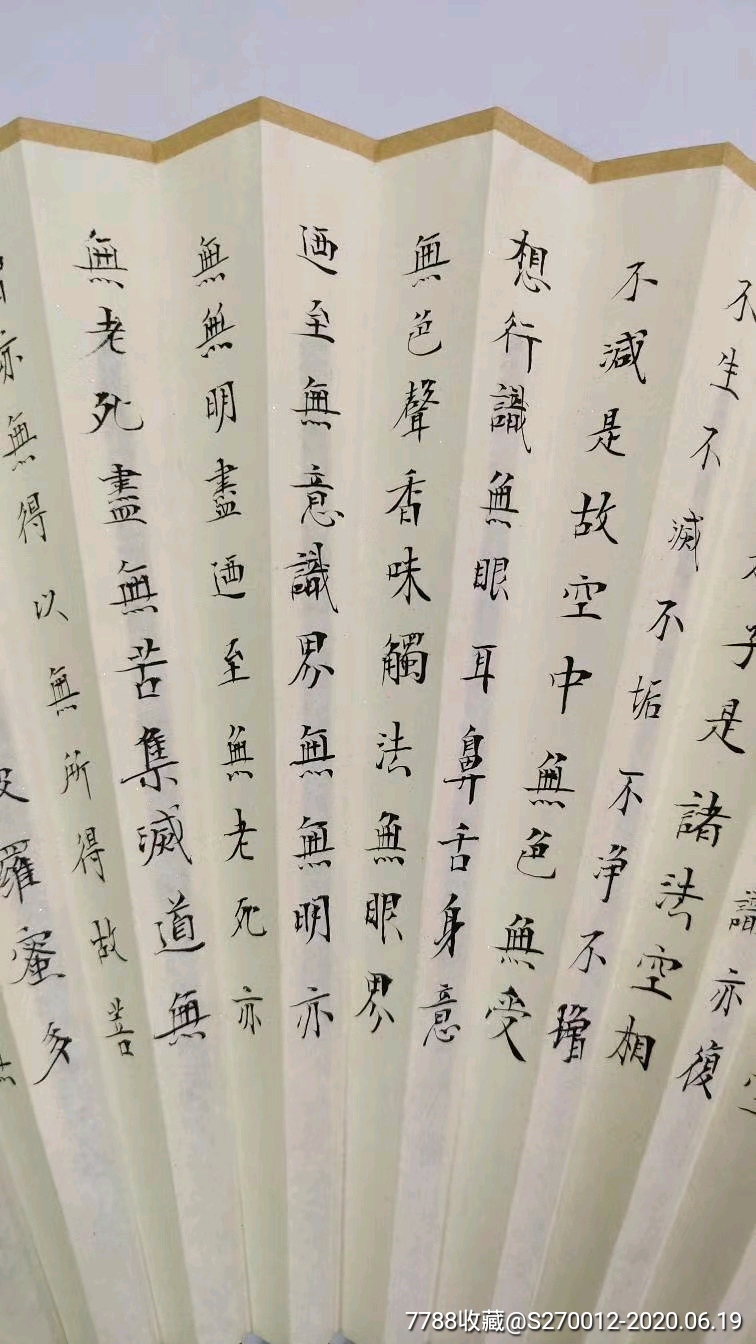 識亦復
子是諸法空相
不生不滅不垢不净不增
不減是故空中無色無受
想行識無眼耳鼻舌身意
無色聲香味觸法無眼界
迺至無意識界無無明亦
無無明盡迺至無老死亦
無老死盡無苦集滅道無
亦無得以無所得故菩
羅蜜多
7788收藏@S270012-2020.06.19